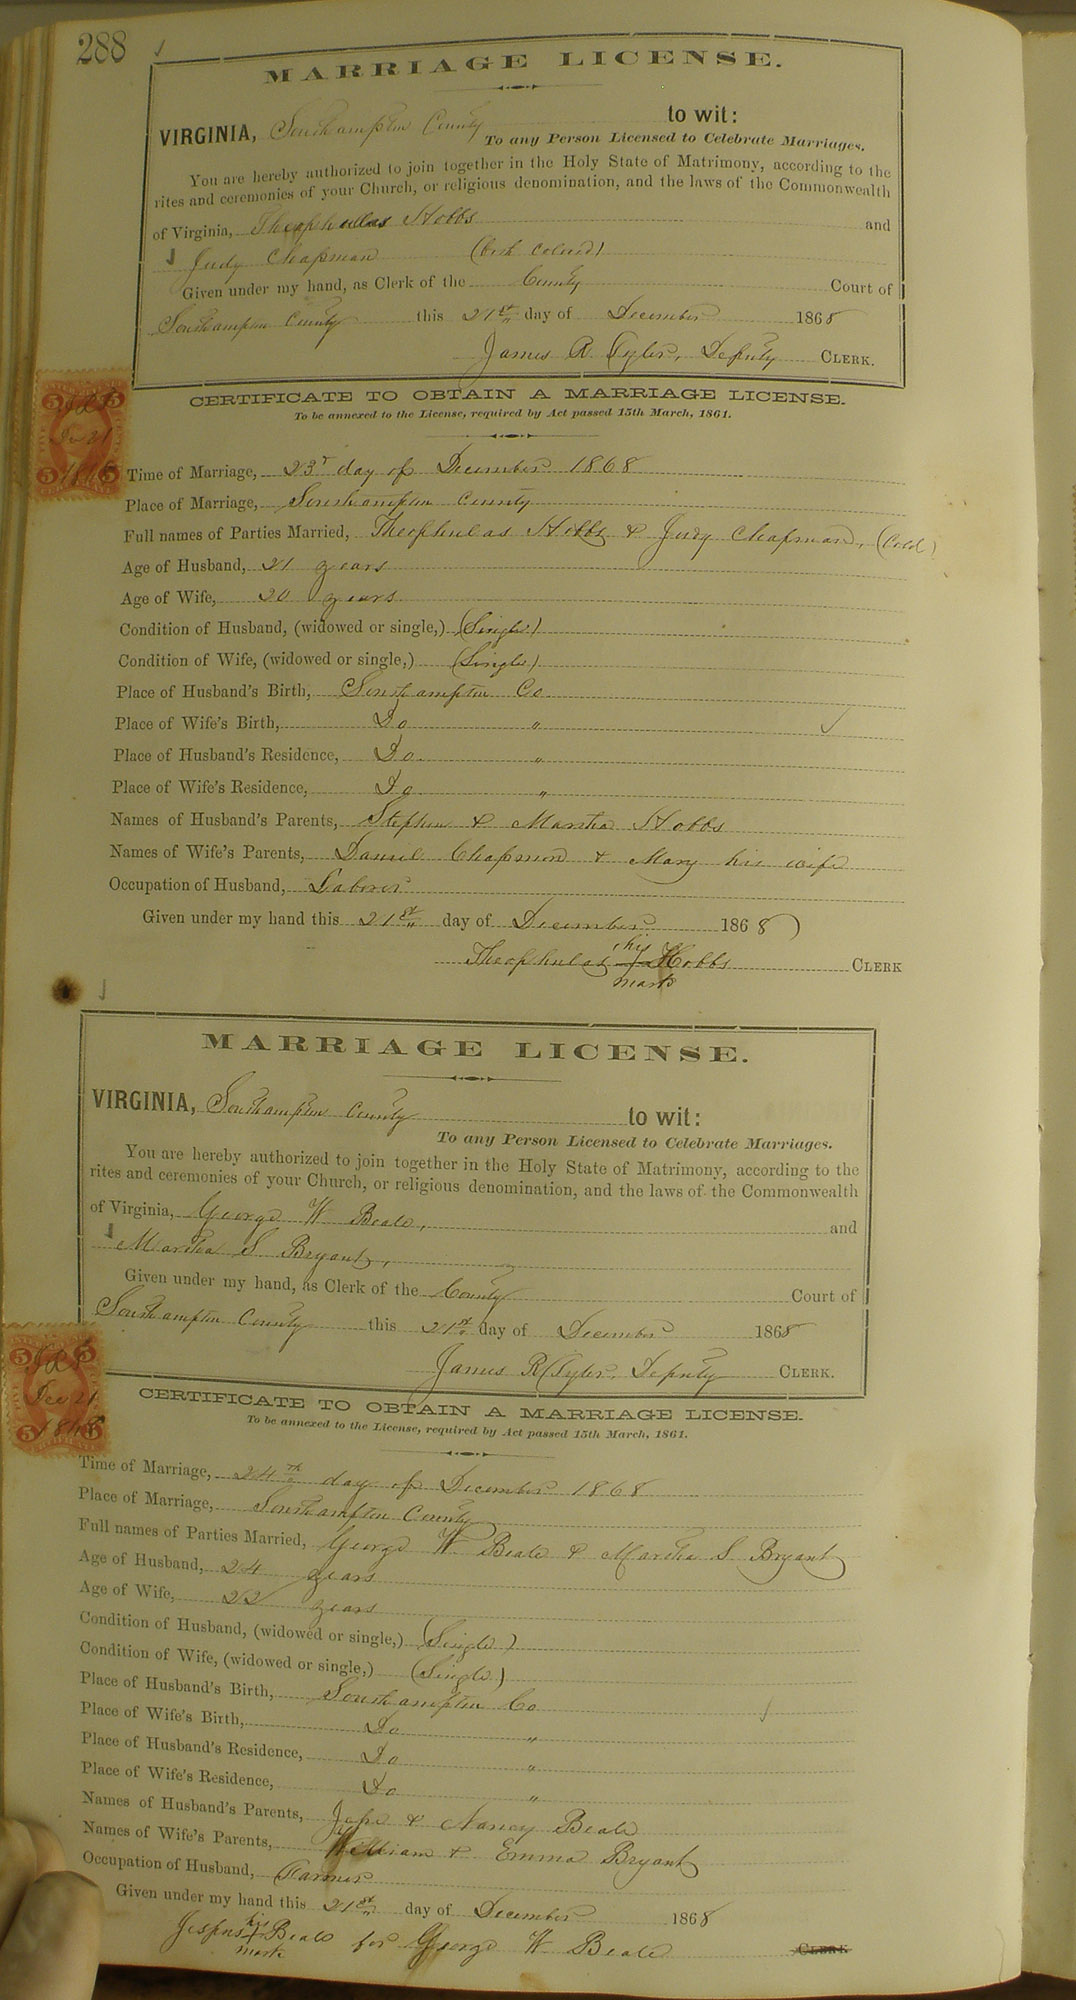 288
MARRIAGE LICENSE.
VIRGINIA, Southampton County to wit:
To any Person Licensed to Celebrate Marriages.
You are hereby authorized to join together in the Holy State of Matrimony, according to the
rites and ceremonies of your Church, or religious denomination, and the laws of the Commonwealth
of Virginia, Theophulas Hobbs and
Judy Chapman (both colored)
Given under my hand, as Clerk of the County Court of
Southampton County this 21st day of December 1868
James R Tyler, Deputy CLERK.
CERTIFICATE TO OBTAIN A MARRIAGE LICENSE.
To be annexed to the License, required by Act passed 15th March, 1861.
Time of Marriage, 23r day of December 1868
Place of Marriage, Southampton County
Full names of Parties Married, Theophulas Hobbs & Judy Chapman, (Cold)
Age of Husband, 21 years
Age of Wife, 20 years
Condition of Husband, (widowed or single,) (Single)
Condition of Wife, (widowed or single,) (Single)
Place of Husband's Birth, Southampton Co
Place of Wife's Birth, Do "
Place of Husband's Residence, Do "
Place of Wife's Residence, Do "
Names of Husband's Parents, Stephen & Martha Hobbs
Names of Wife's Parents, Daniel Chapman & Mary his wife
Occupation of Husband, Laborer
Given under my hand this 21st day of December 1868
Theophulas his Hobbs CLERK
mark
MARRIAGE LICENSE.
VIRGINIA, Southampton County to wit:
To any Person Licensed to Celebrate Marriages.
You are hereby authorized to join together in the Holy State of Matrimony, according to the
rites and ceremonies of your Church, or religious denomination, and the laws of the Commonwealth
of Virginia, George W Beale, and
Martha S Bryant,
Given under my hand, as Clerk of the County Court of
Southampton County this 21st day of December 1868
James R Tyler, Deputy CLERK.
Dec 21
1868
CERTIFICATE TO OBTAIN A MARRIAGE LICENSE.
To be annexed to the License, required by Act passed 15th March, 1861.
Time of Marriage, 24th day of December 1868
Place of Marriage, Southampton County
Full names of Parties Married, George W Beale & Martha S Bryant
Age of Husband, 24 years
Age of Wife, 22 years
Condition of Husband, (widowed or single,) (Single)
Condition of Wife, (widowed or single,) (Single)
Place of Husband's Birth, Southampton Co
Place of Wife's Birth, Do "
Place of Husband's Residence, Do "
Place of Wife's Residence, Do "
Names of Husband's Parents, & Nancy Beale
Names of Wife's Parents, William & Emma Bryant
Occupation of Husband, Farmer
Given under my hand this 21st day of December 1868
his Beale for George W Beale CLERK
mark